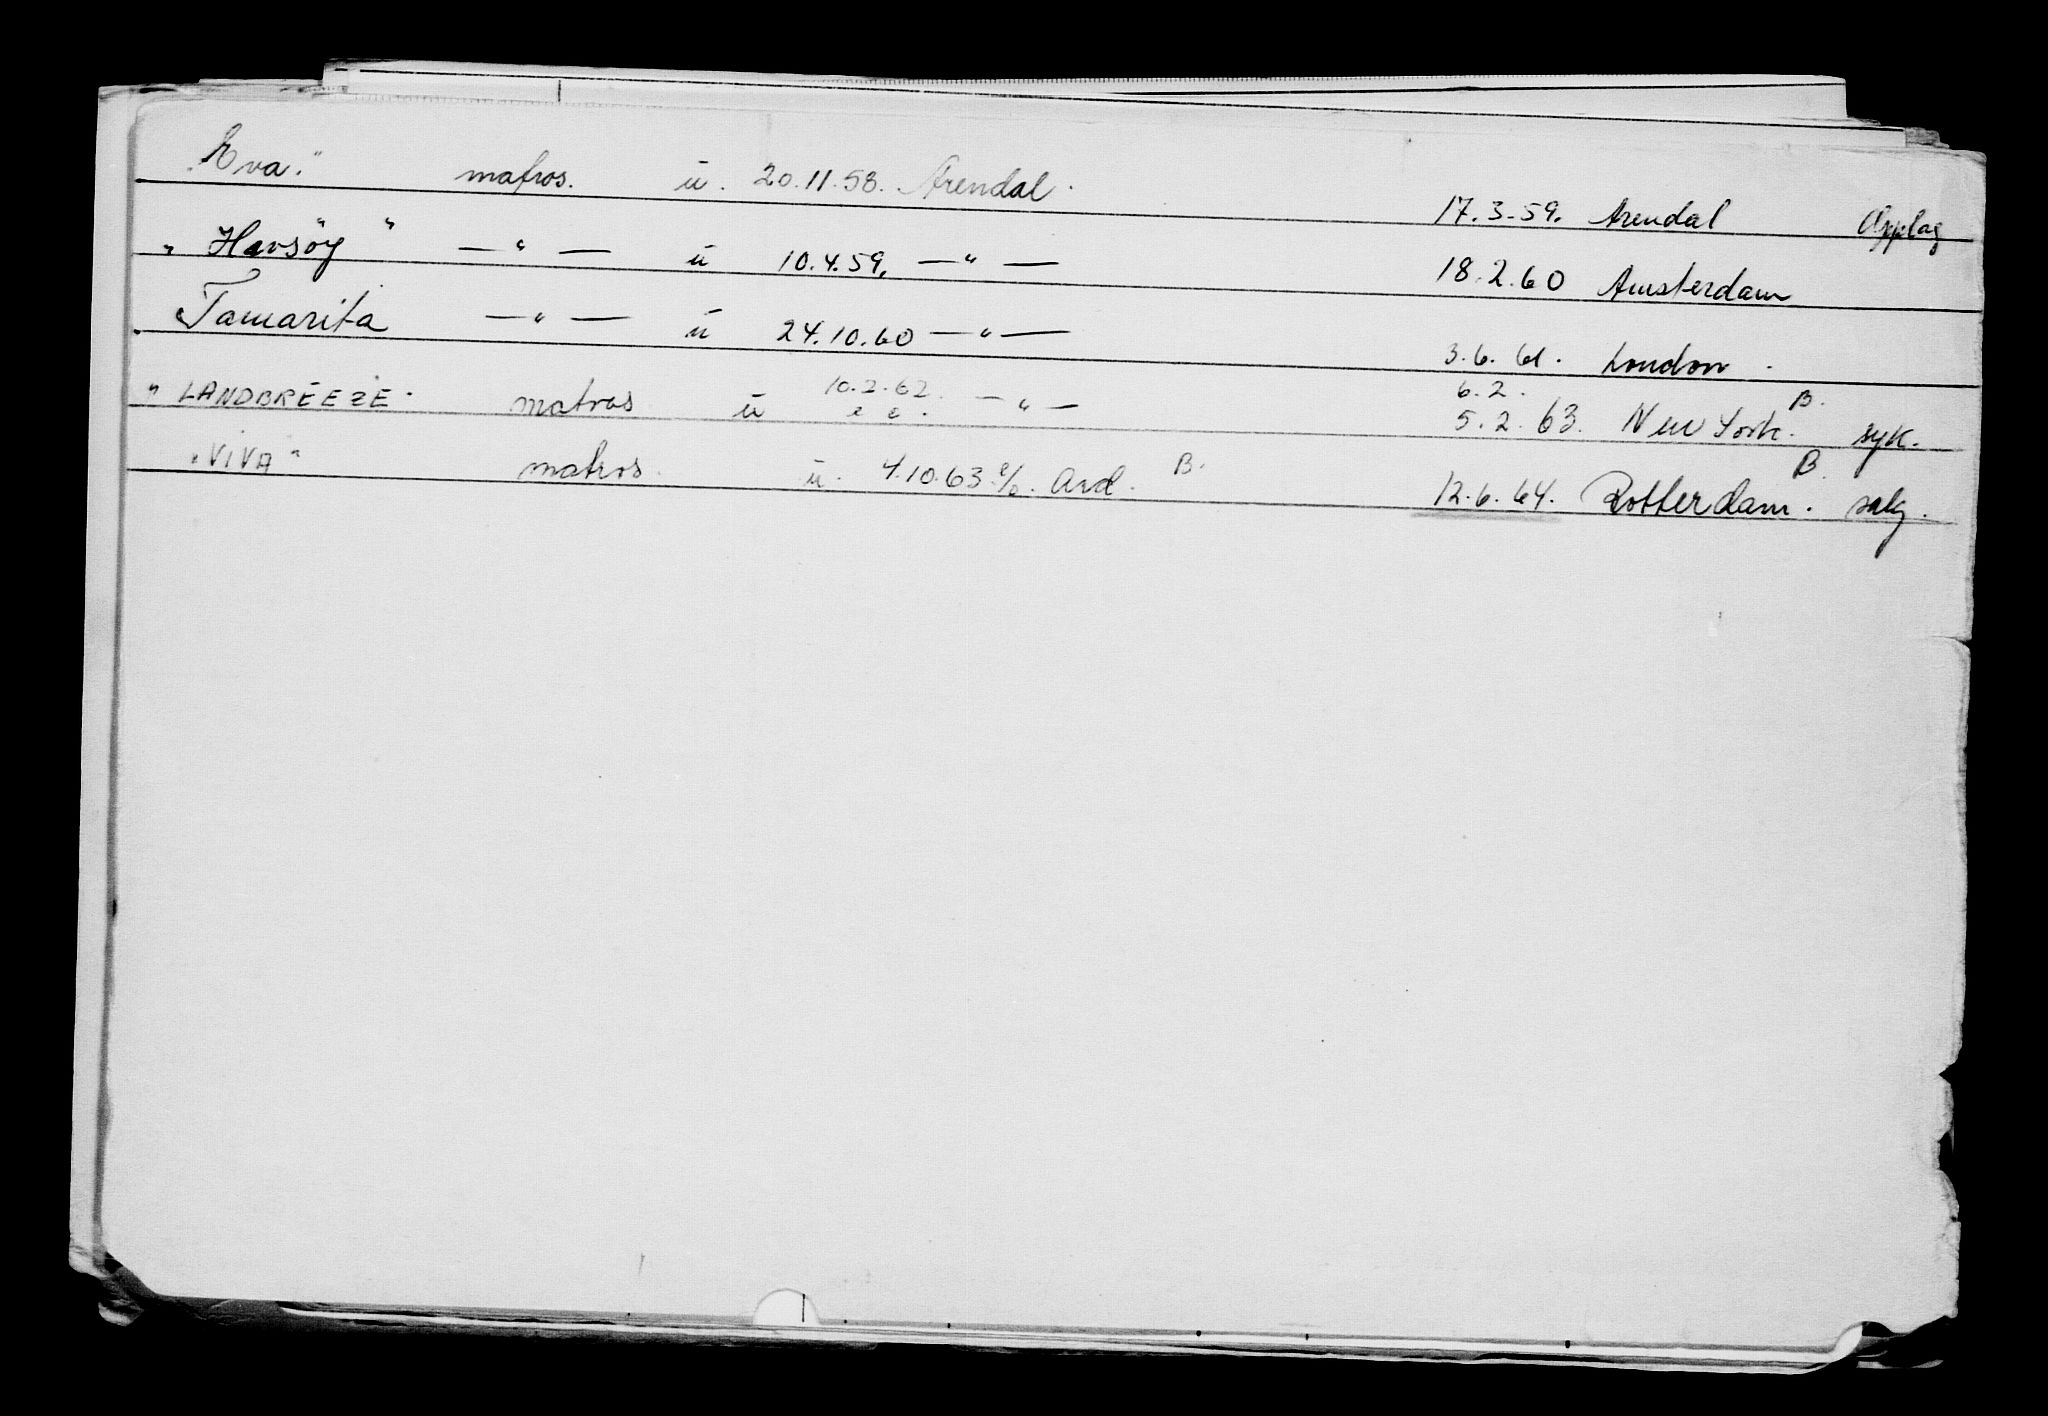 "Eva." matros. ü. 20.11.58. Arendal. 17.3.59. Arendal Opplag
"Havsöy" — " — ü 10.4.59. — " — 18.2.60 Amsterdam
"Tamarita — " — ü 24.10.60 — " — 3.6.61. London.
" LANDBREEZE. matros ü 10.2.62. — " — 6.2.
5.2.63. New York. B. syk.
"VIVA" matros. ü. 4.10.63 Ard. B. 12.6.64. Rotterdam. B. salg.